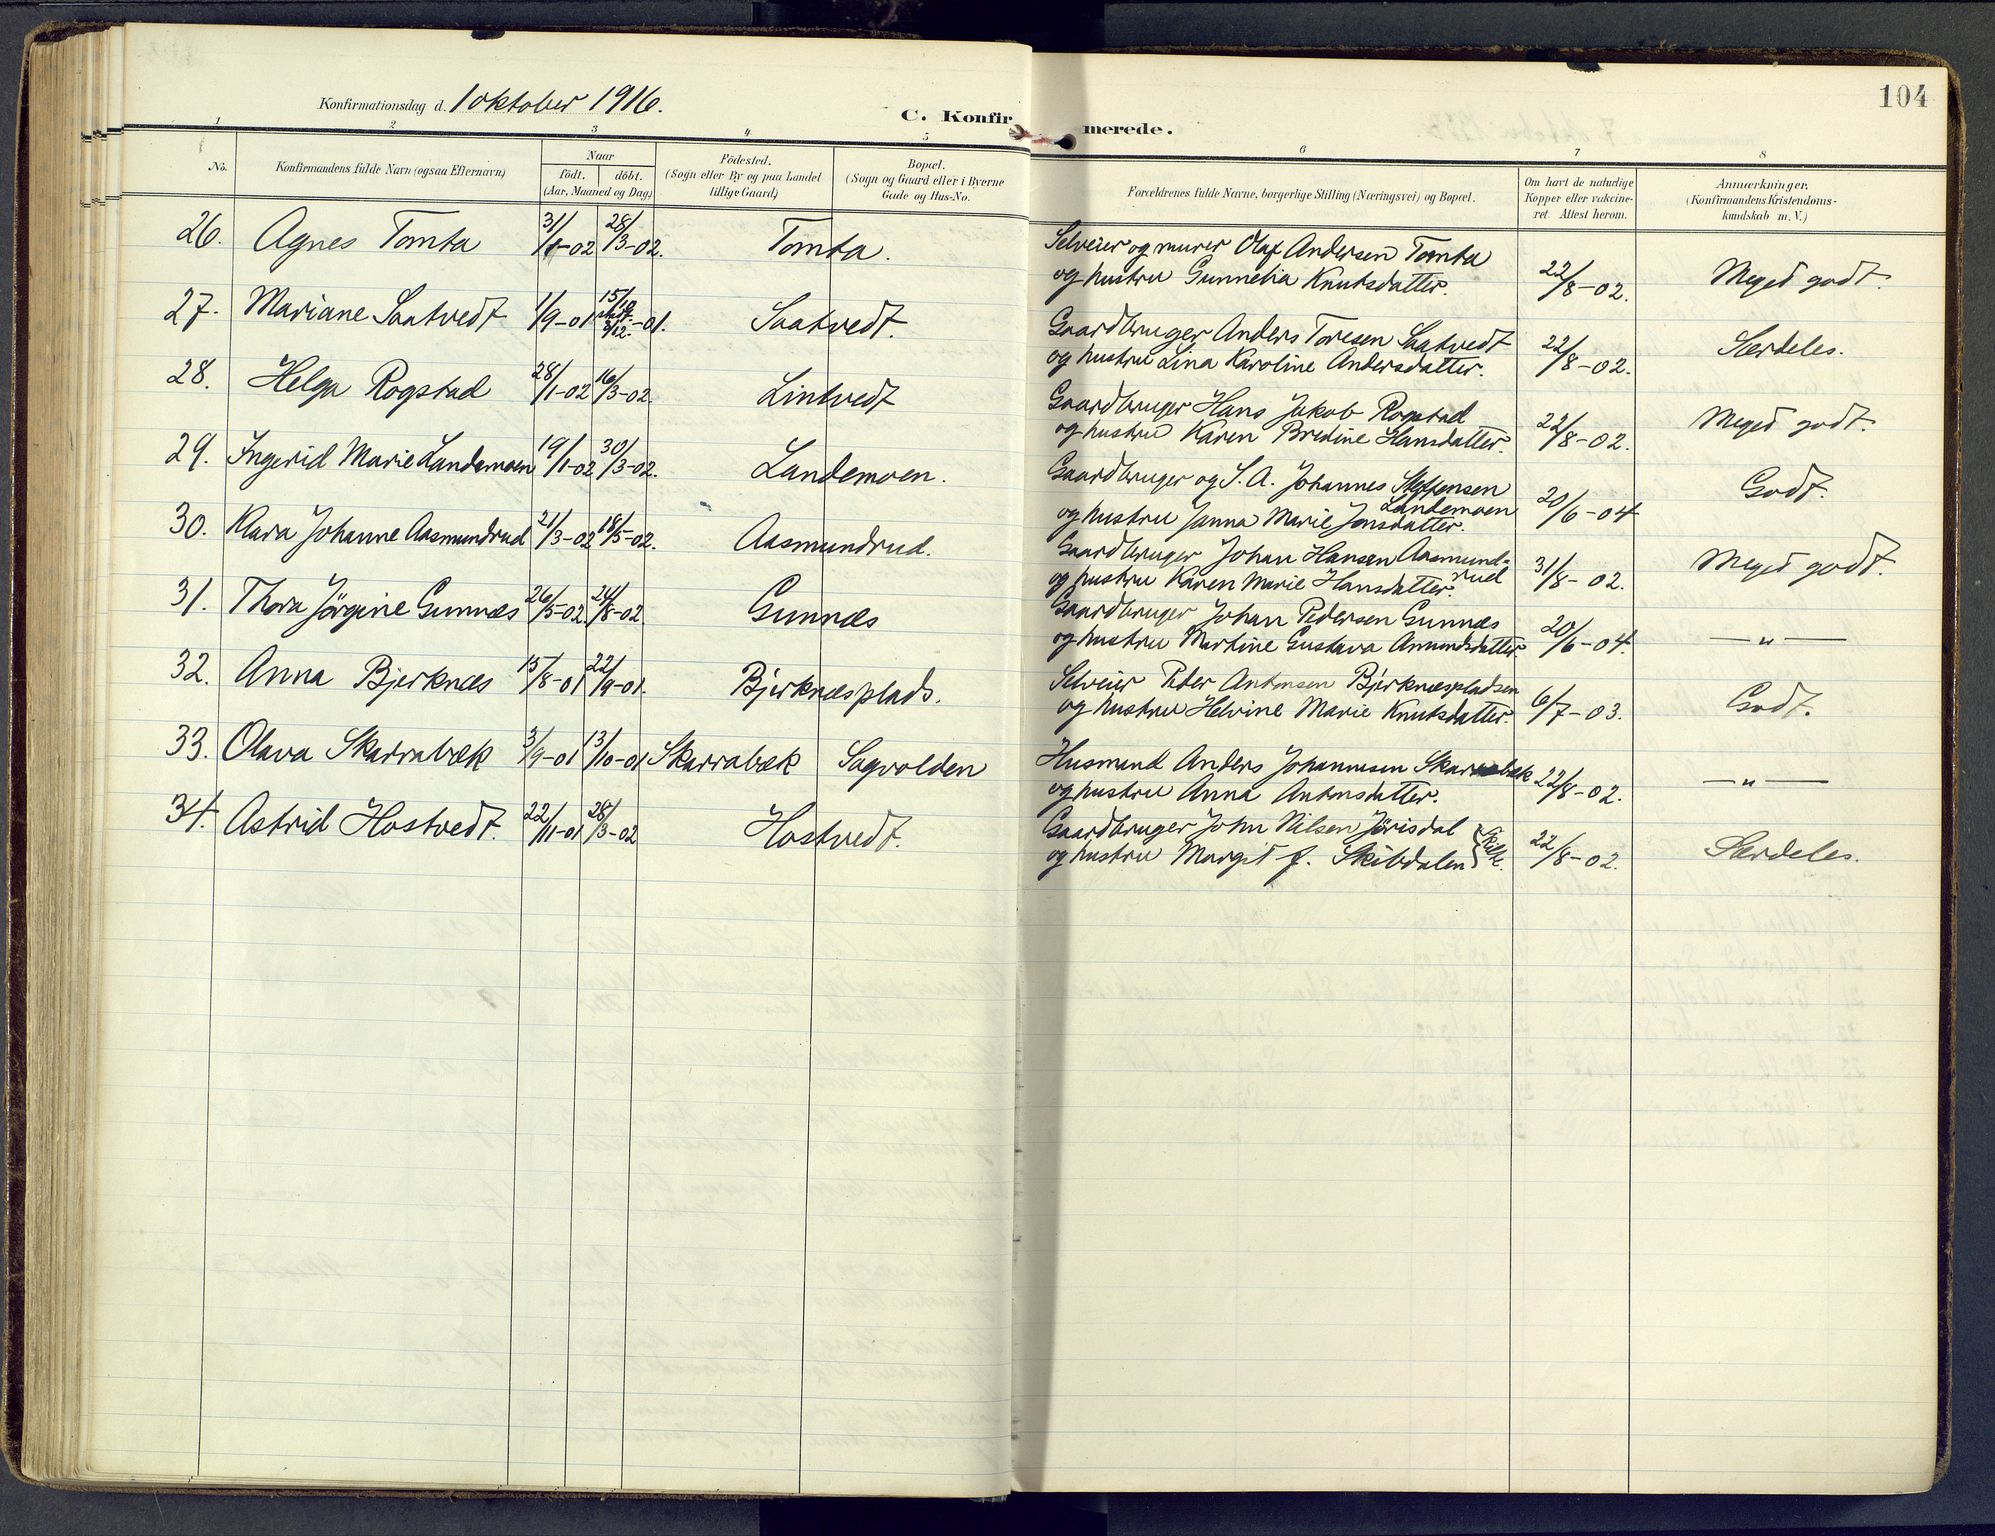 104
Konfirmationsdag d. 1 oktober 1916.
C. Konfirmerede.
1 2 3 4 5 6 7 8
No.
Konfirmandens fulde Navn (ogsaa Efternavn)
Naar
født. døbt.
(Aar, Maaned og Dag)
Fødested.
(Sogn eller By og paa Landet
tillige Gaard)
Bopæl.
(Sogn og Gaard eller i Byerne
Gade og Hus-No.
Forældrenes fulde Navne, borgerlige Stilling (Næringsvei) og Bopæl.
Om havt de naturlige
Kopper eller vakcine-
ret. Attest herom.
Anmærkninger.
(Konfirmandens Kristendoms-
kundskab m. V.)
26. Agnes Tomta 31/1-02 28/3-02. Tomta. Selveier og murer Olaf Andersen Tomta
og hustru Gunnelia Knutsdatter. 22/8-02. Meget godt.
27. Mariane Saatvedt 1/9-01 15/10 stadf. 8/12-01. Saatvedt. Gaardbruger Anders Toresen Saatvedt
og hustru Lina Karoline Andersdatter. 22/8-02. Særdeles.
28. Helga Rogstad 28/1-02 16/3-02. Lintvedt Gaardbruger Hans Jakob Rogstad
og hustru Karen Bredine Hansdatter. 22/8-02. Meget godt.
29. Ingerid Marie Landemoen 19/1-02 30/3-02. Landemoen. Gaardbruger og S. A. Johannes Steffensen
Landemoen
og hustru Janna Marie Jonsdatter. 20/6-04 Godt.
30. Klara Johanne Aasmundrud 21/3-02 18/5-02. Aasmundrud. Gaardbruger Johan Hansen Aasmund-
rud
og hustru Karen Marie Hansdatter. 31/8-02. Meget godt.
31. Thora Jörgine Gunnæs 26/5-02. 24/8-02. Gunnæs Gaardbruger Johan Pedersen Gunnæs
og hustru Martine Gustava Amundsdatter. 20/6-04. —"—
32. Anna Bjerknæs 15/8-01 22/9-01. Bjerknæsplads. Selveier Peder Antonsen Bjerknæspladsen
og hustru Helvine Marie Knutsdatter. 6/7-03. Godt.
33. Olava Skarrabæk 3/9-01 13/10-01 Skarrabæk Sagvolden Husmand Anders Johannesen Skarrabæk
og hustru Anna Antonsdatter. 22/8-02. —"—
34. Astrid Hostvedt. 22/11-01 28/3-02 Hostvedt. Gaardbruger John Nilsen Jörisdal
og hustru Margit f. Skibdalen 22/8-02. Særdeles.